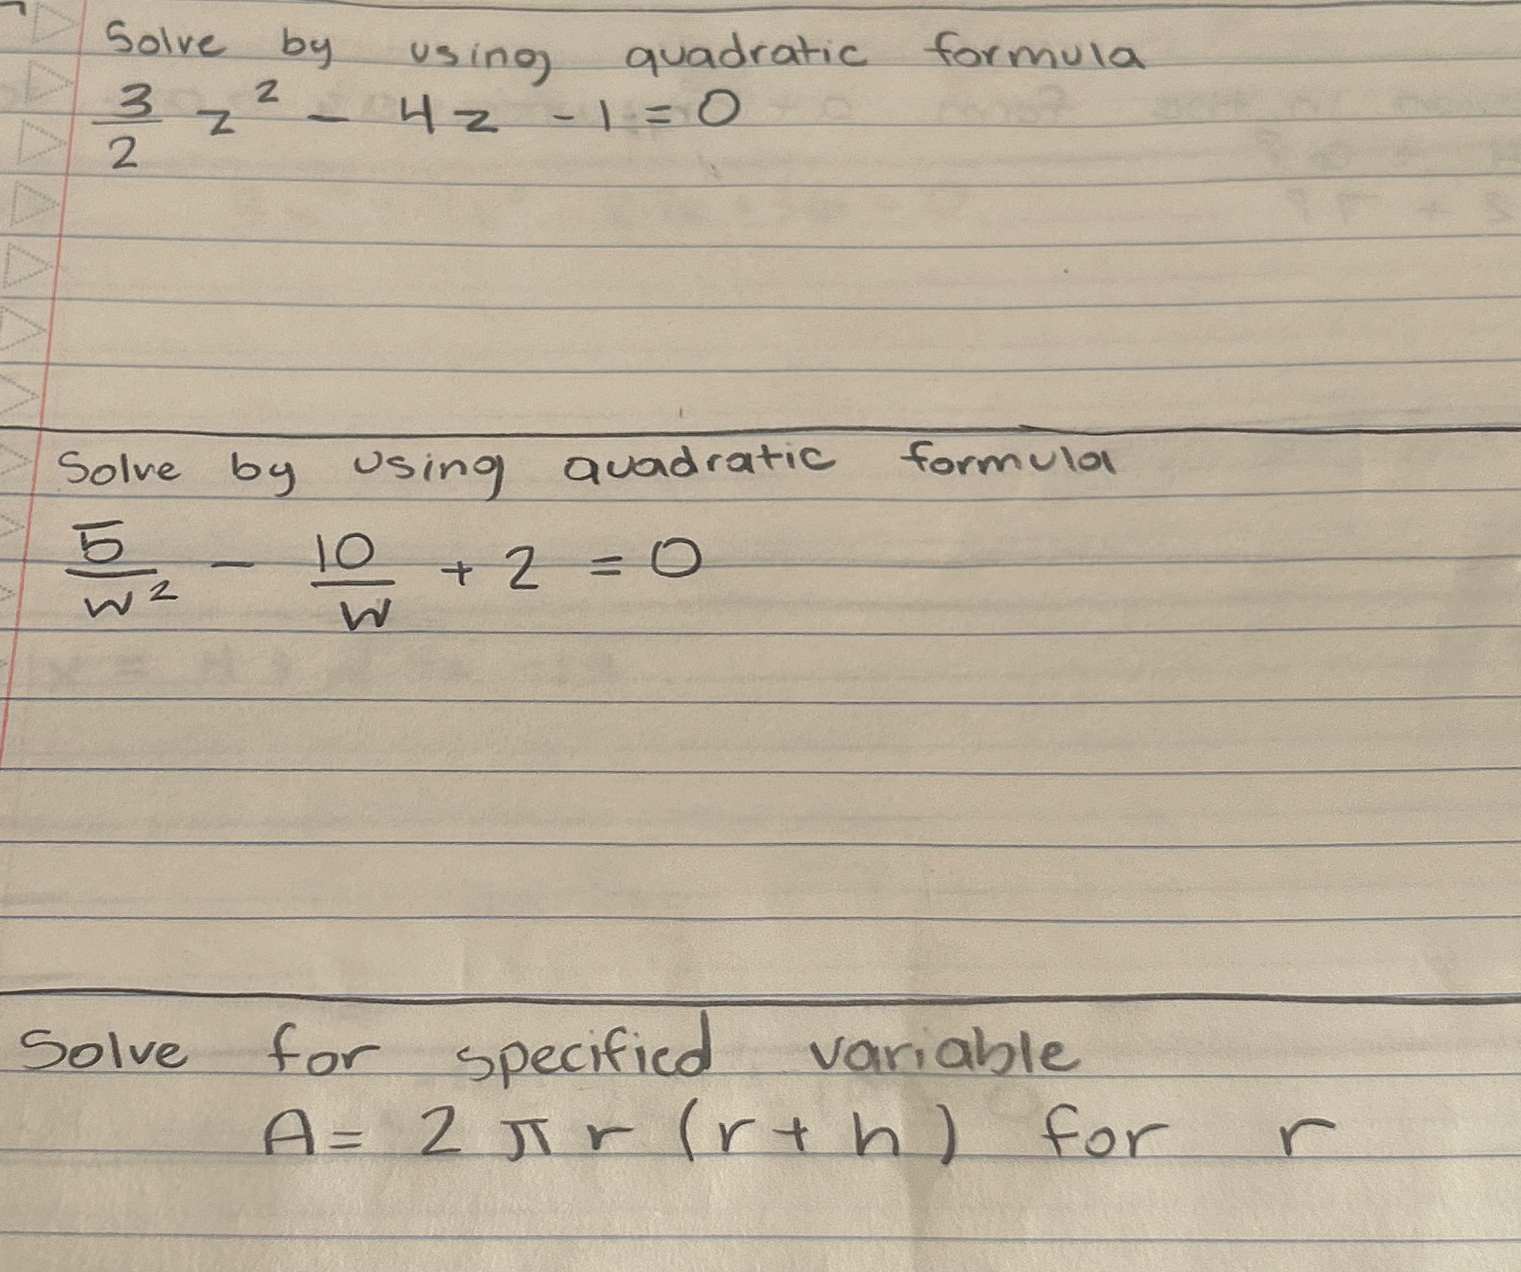 Solve by using quadratic formula
3/2 z² - 4z - 1 = 0
Solve by using quadratic formula
5/w² - 10/w + 2 = 0
Solve for specified variable
A = 2πr(r+h) for r